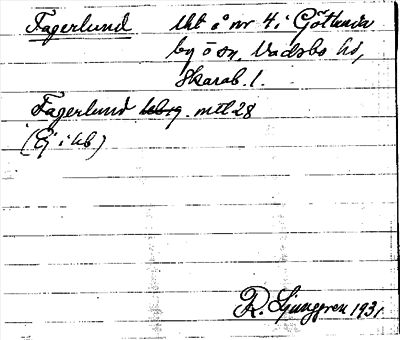 Fagerlund Utt å nr 4 i Götlunda
by o sn, Vadsbo hd,
Skarab. l.
Fagerlund mtl 28
(Ej i kb)
R. Ljunggren 1931